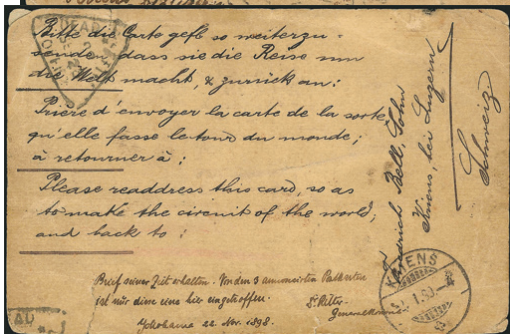 Bitte die Carte gefl. so weiterzu-
senden, dass sie die Reise um
die Welt macht, & zurück an:
Prière d'envoyer la carte de la sorte
qu'elle fasse le tour du monde;
à retourner à:
Please readdress this card, so as
to make the circuit of the world;
and back to:
Brief seiner Zeit erhalten. Von den 3 annoncirten Postkarten
ist nur diese eine hier eingetroffen.
Yokohama 22. Nov. 1898.
Dr. Ritter
Bell, Sohn
Kriens, bei Luzern
Schweiz
KRIENS